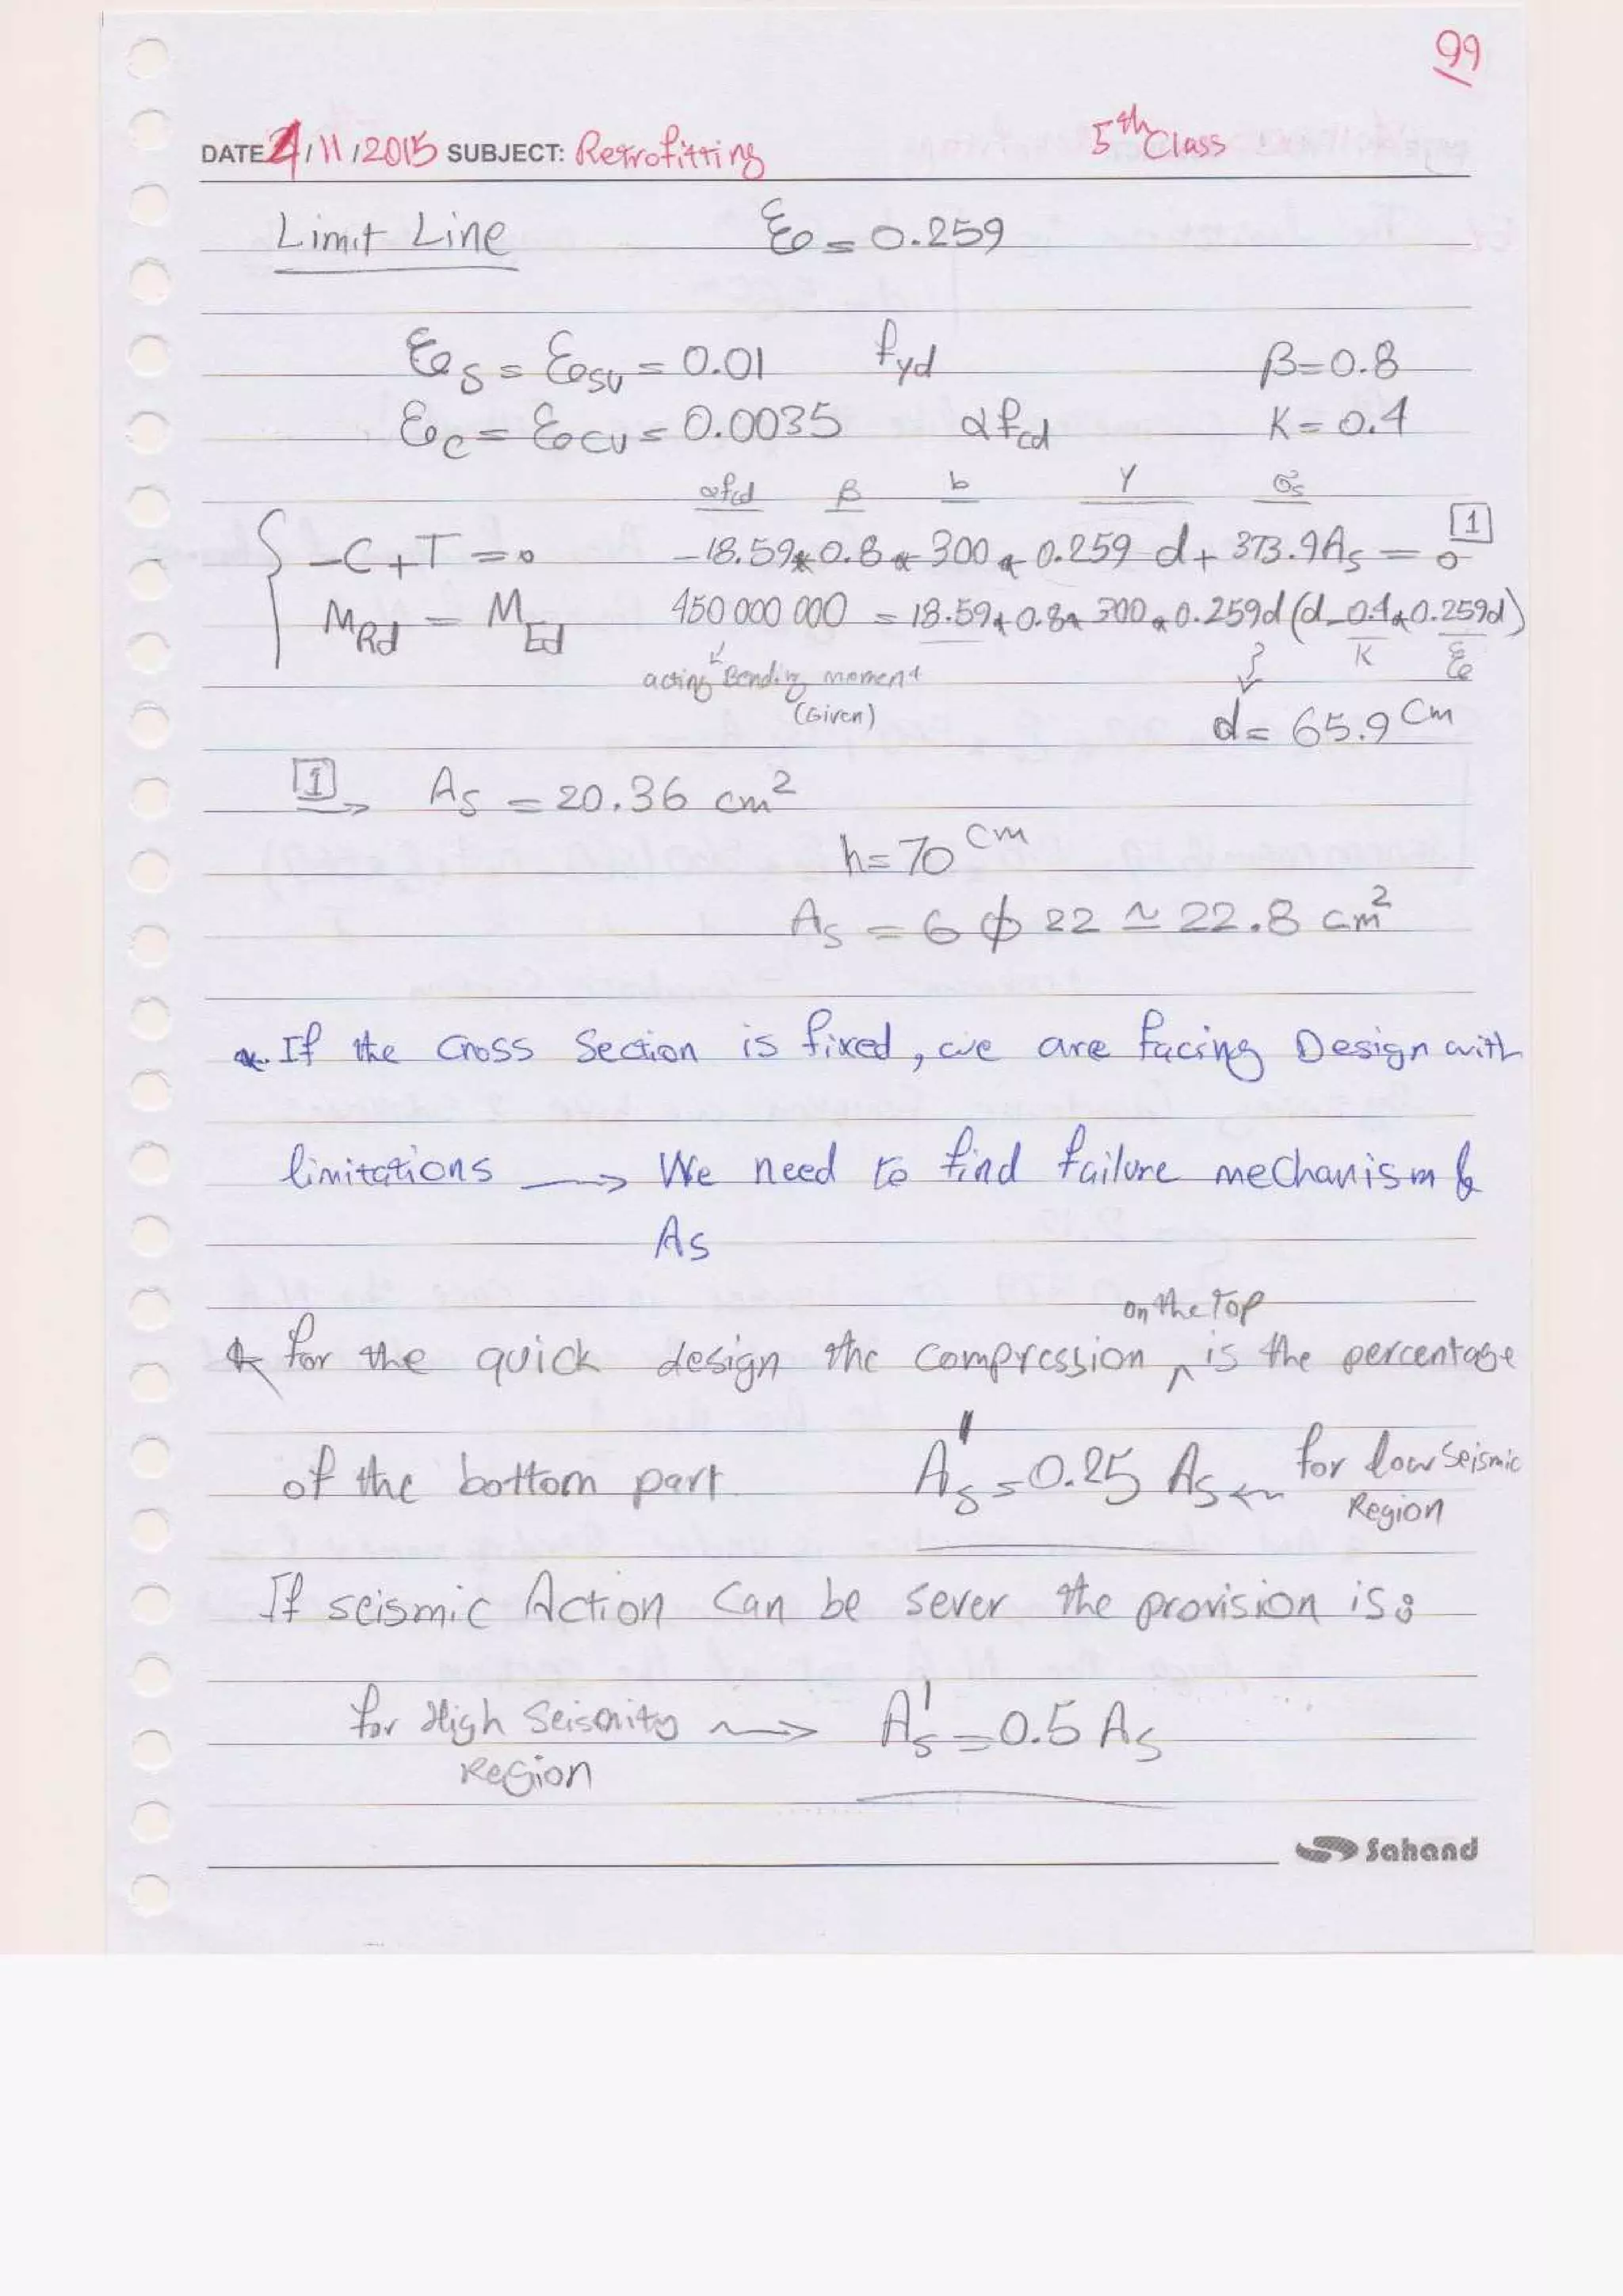 99
DATE 4/11/2015 SUBJECT: Retrofitting 5th Class
Limit Line ξ = 0.259
εs = εsu = 0.01 fyd β=0.8
εc = εcu = 0.0035 αfcd K=0.4
αfcd β b Y σs
{ -C+T=0 -18.59*0.8*300*0.259 d + 373.9As = 0 [1]
MRd = MEd 450 000 000 = 18.59*0.8*300*0.259d(d-0.4*0.259d)
K ξ
acting Bending moment
(Given)
d = 65.9 cm
[1] → As = 20.36 cm²
h=70 cm
As = 6 ϕ 22 ≃ 22.8 cm²
* If the cross Section is fixed, we are facing Design with
limitations → We need to find failure mechanism &
As
on the Top
* for the quick design the compression ^ is the percentage
of the bottom part A's = 0.25 As ← for low Seismic
Region
If seismic Action can be sever the provision is:
for High Seismity → A's = 0.5 As
Region
Sahand